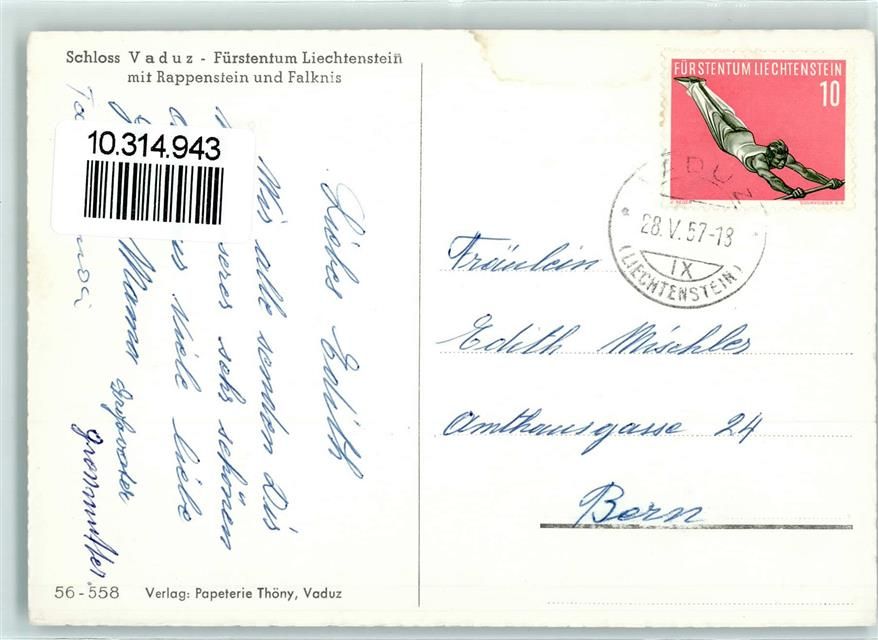 Schloss Vaduz - Fürstentum Liechtenstein
mit Rappenstein und Falknis
10.314.943
Liebes Edith
Wir alle senden Dir
unseres sehr schönen
viele liebe
Mama
Grossvater
Grossmutter.
56-558 Verlag: Papeterie Thöny, Vaduz
FÜRSTENTUM LIECHTENSTEIN
10
VADUZ
28.V.57-18
IX
(LIECHTENSTEIN)
Fräulein
Edith Mischler
Amthausgasse 24
Bern